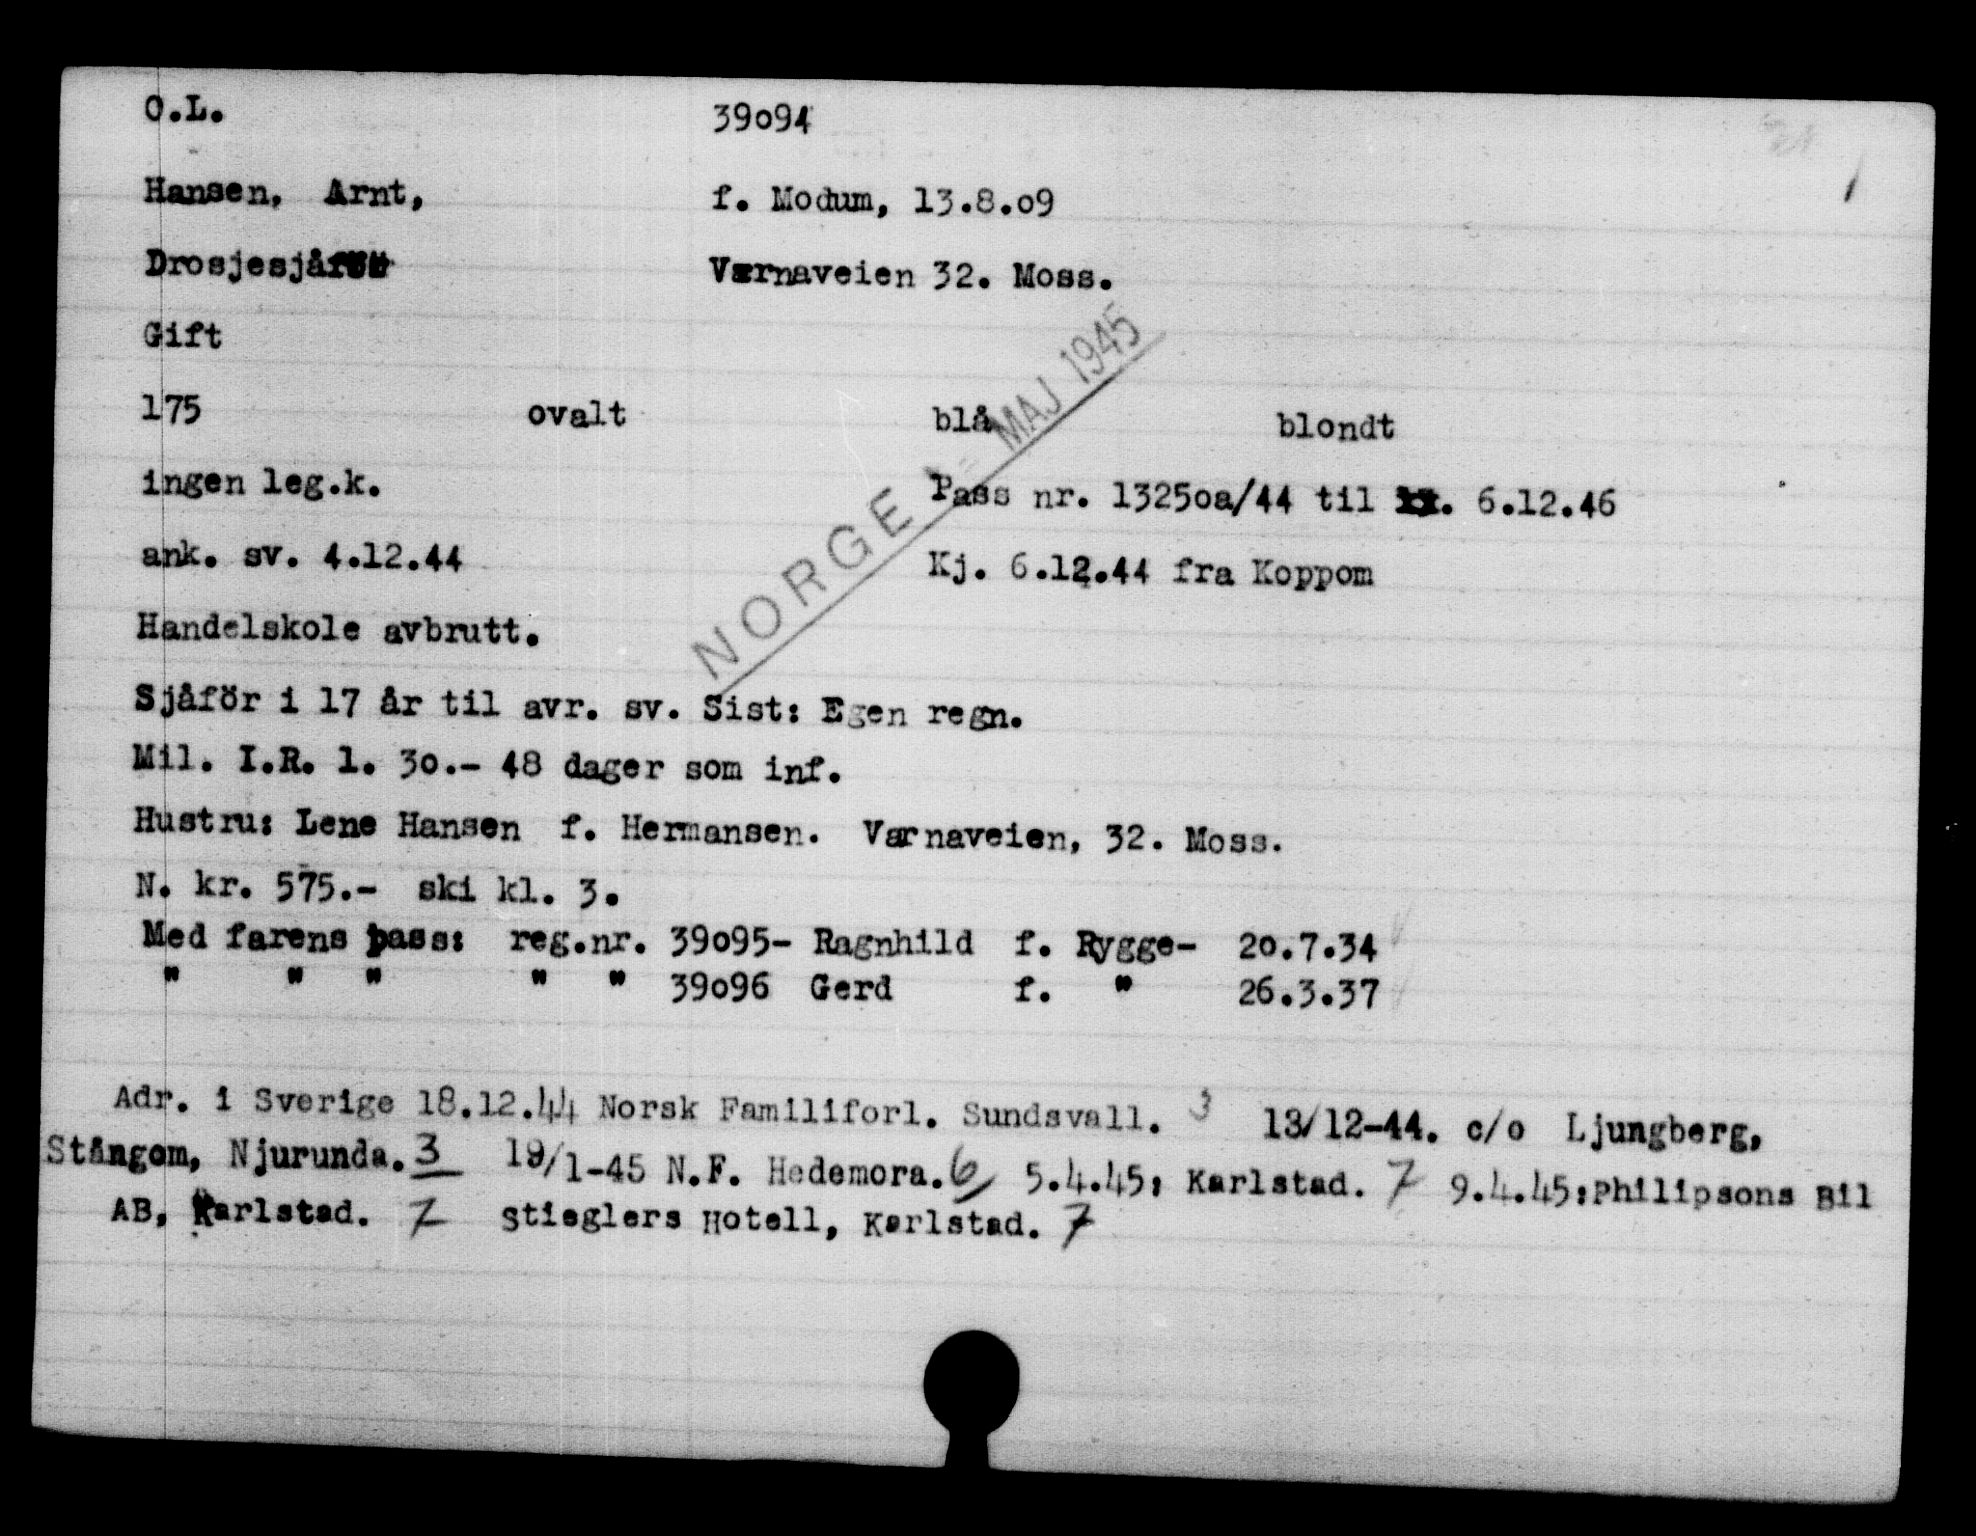 O.L. 39o94
1
Hansen, Arnt, f. Modum, 13.8.o9
Drosjesjåför Værnaveien 32. Moss.
Gift
175 ovalt blå blondt
NORGE MAJ 1945
ingen leg.k. Pass nr. 1325oa/44 til 6.12.46
ank. sv. 4.12.44 Kj. 6.12.44 fra Koppom
Handelskole avbrutt.
Sjåför i 17 år til avr. sv. Sist: Egen regn.
Mil. I.R. 1. 3o.- 48 dager som inf.
Hustru: Lene Hansen f. Hermansen. Værnaveien, 32. Moss.
N. kr. 575.- ski kl. 3.
Med farens pass: reg.nr. 39o95- Ragnhild f. Rygge- 2o.7.34
" " " " " 39o96 Gerd f. " 26.3.37
Adr. i Sverige 18.12.44 Norsk Familiforl. Sundsvall. 3 13/12-44. c/o Ljungberg,
Stångom, Njurunda. 3 19/1-45 N.F. Hedemora. 6 5.4.45: Karlstad. 7 9.4.45:Philipsons Bil
AB, Karlstad. 7 Stieglers Hotell, Karlstad. 7